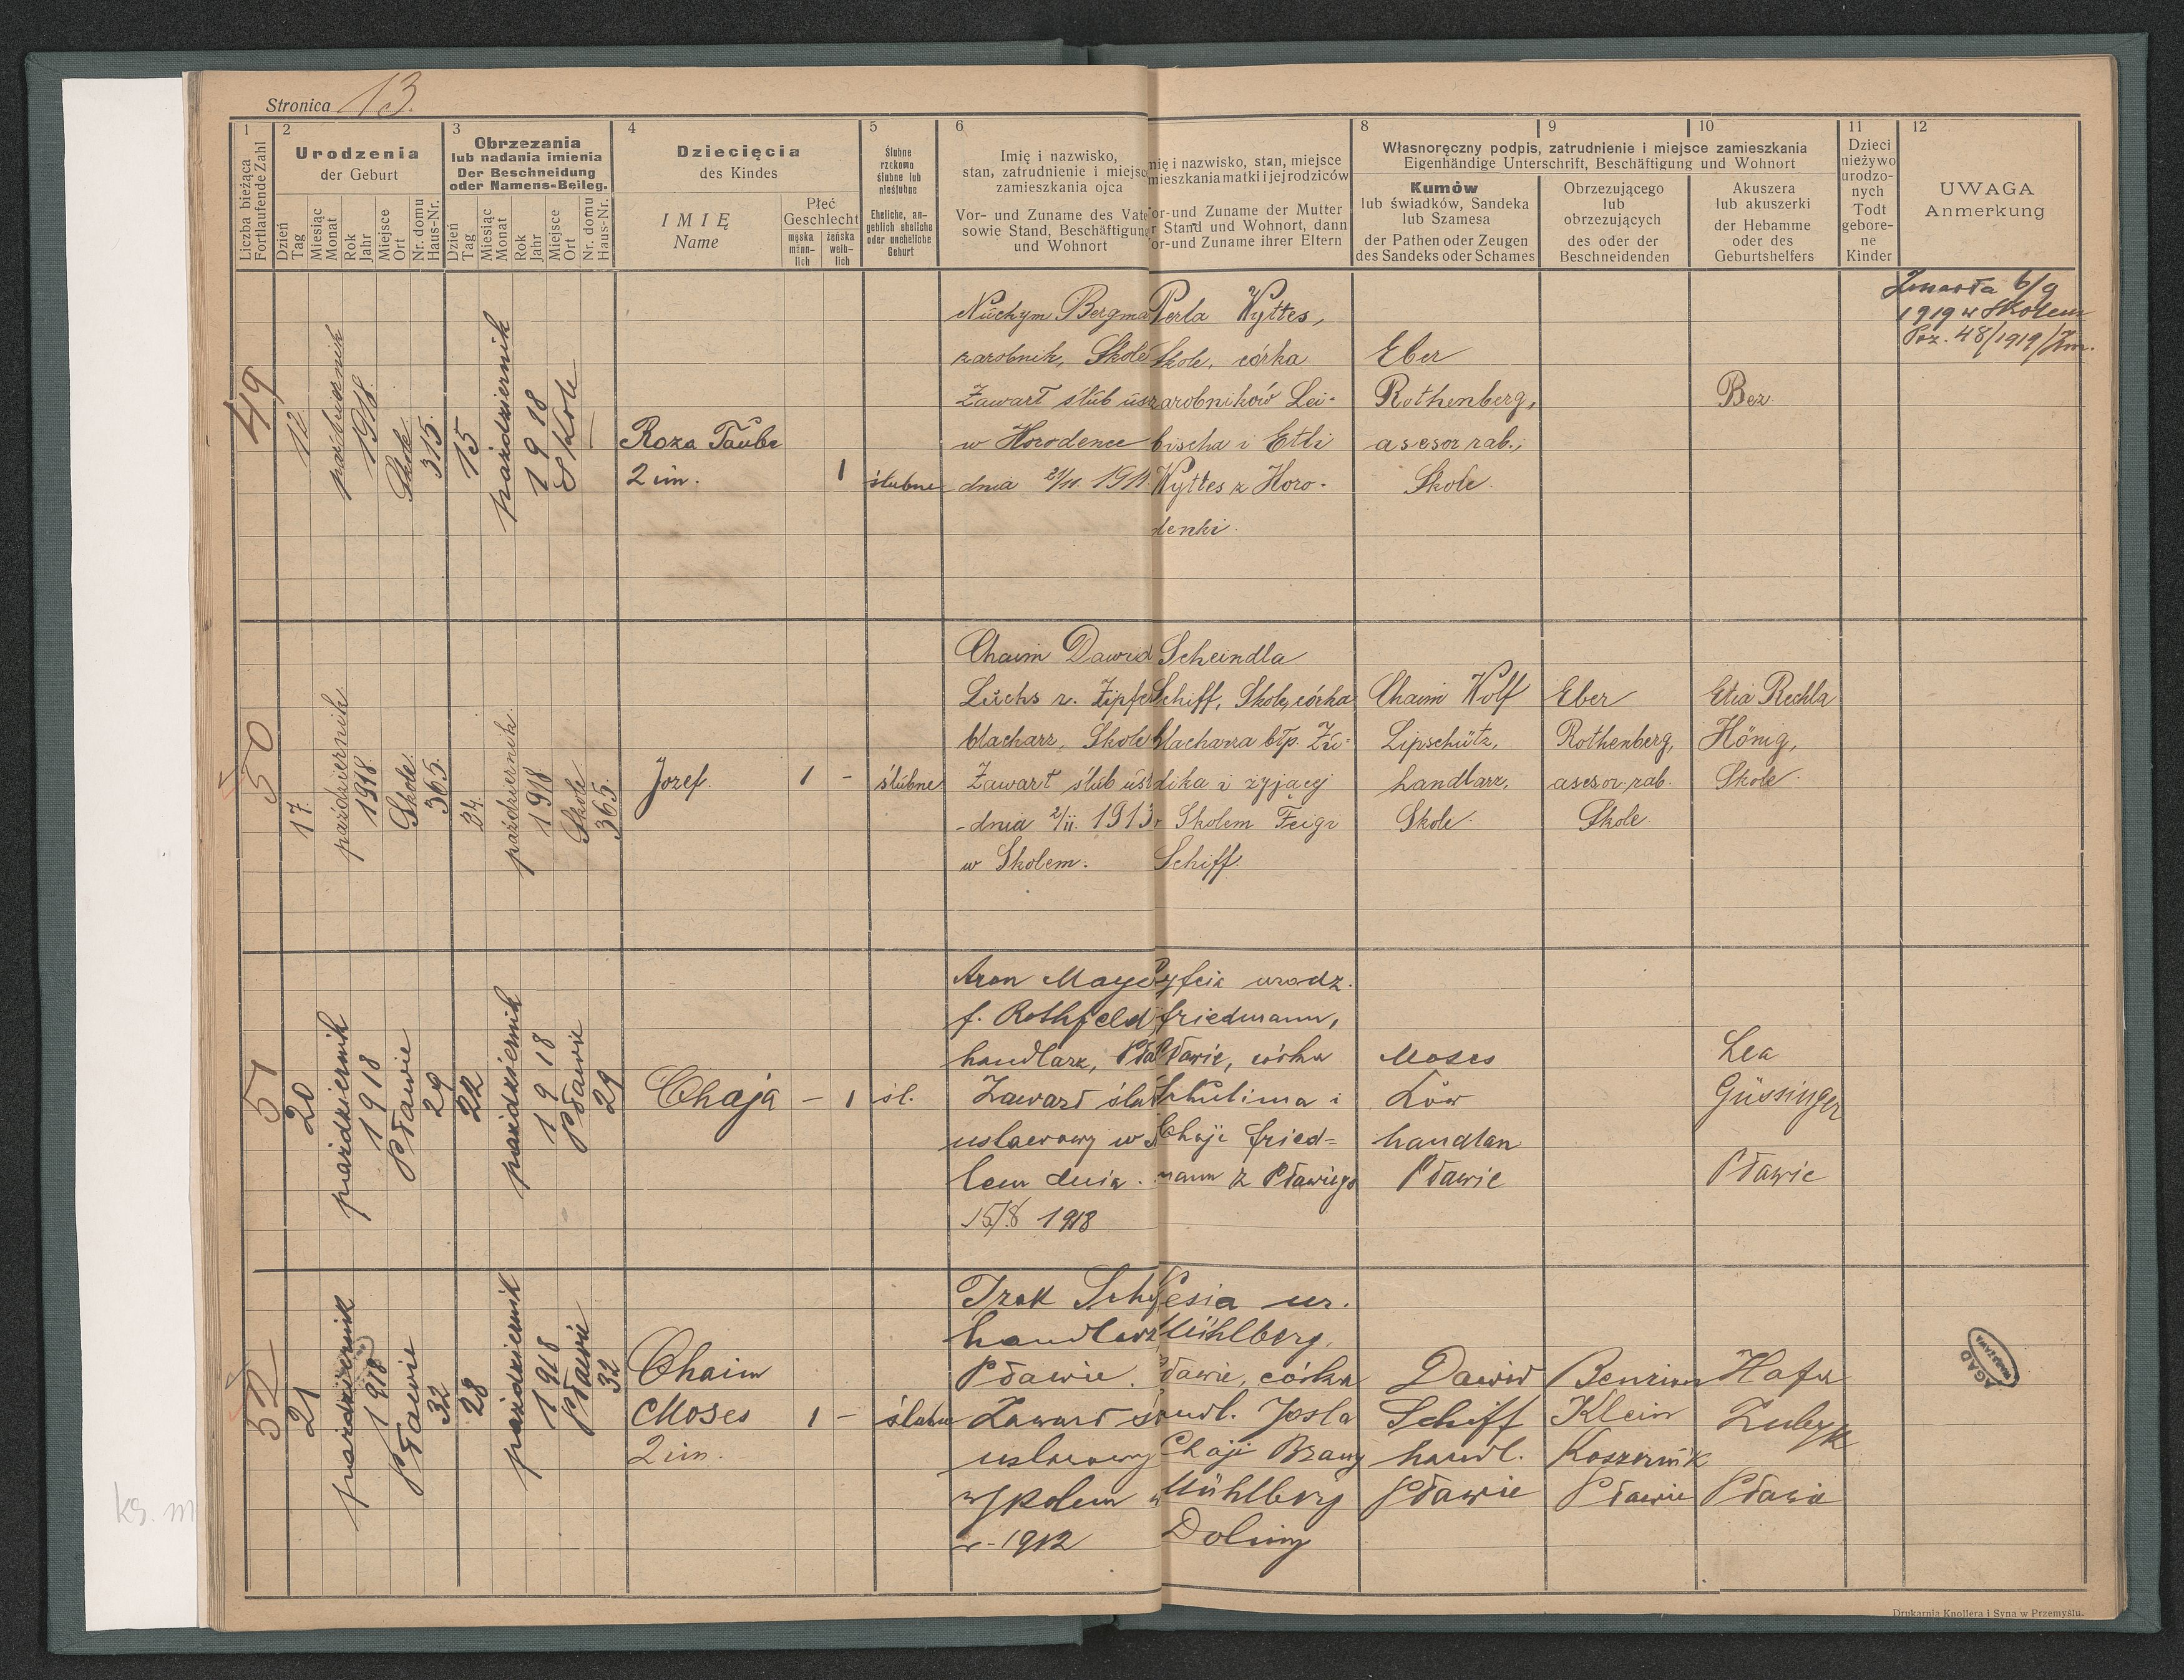 Stronica 13.
1
Liczba bieżąca
Fortlaufende Zahl
2
Urodzenia
der Geburt
Dzień
Tag
Miesiąc
Monat
Rok
Jahr
Miejsce
Ort
Nr. domu
Haus-Nr.
3
Obrzezania
lub nadania imienia
Der Beschneidung
oder Namens-Beileg.
Dzień
Tag
Miesiąc
Monat
Rok
Jahr
Miejsce
Ort
Nr. domu
Haus-Nr.
4
Dziecięcia
des Kindes
IMIĘ
Name
Płeć
Geschlecht
męska
männ-
lich
żeńska
weib-
lich
5
Ślubne
rzekomo
ślubne lub
nieślubne
Eheliche, an-
geblich eheliche
oder uneheliche
Geburt
6
Imię i nazwisko,
stan, zatrudnienie i miejsc
zamieszkania ojca
Vor- und Zuname des Vate
sowie Stand, Beschäftigung
und Wohnort
nię i nazwisko, stan, miejsce
mieszkania matki i jej rodziców
or-und Zuname der Mutter
r Stand und Wohnort, dann
or-und Zuname ihrer Eltern
Własnoręczny podpis, zatrudnienie i miejsce zamieszkania
Eigenhändige Unterschrift, Beschäftigung und Wohnort
8
Kumów
lub świadków, Sandeka
lub Szamesa
der Pathen oder Zeugen
des Sandeks oder Schames
9
Obrzezującego
lub
obrzezujących
des oder der
Beschneidenden
10
Akuszera
lub akuszerki
der Hebamme
oder des
Geburtshelfers
11
Dzieci
nieżywo
urodzo-
nych
Todt
gebore-
ne
Kinder
12
UWAGA
Anmerkung
49
12
październik
1918
Skole
315.
15
październik
1918
Skole
Roza Taube
2 im.
1
ślubne
Nuchym Bergma
zarobnik, Skole
Zawarł ślub us
w Horodence
dnia 2/11. 191
Perla Wyttes,
Skole, córka
zarobników Lei-
bischa i Etli
Wyttes z Horo-
denki.
Eber
Rothenberg,
asesor rab.,
Skole.
Bez.
Zmarła 6/9
1919 w Skolem
Poz. 48/1919/Zm.
50
17.
październik
1918
Skole
365.
24.
październik
1918
Skole
365.
Jozef.
1 -
ślubne
Chaim Dawid
Luchs v. Zipfe
blacharz, Skole
Zawarł ślub us
- dnia 2/11. 1913
w Skolem.
Scheindla
Schiff, Skole, córka
blacharza błp. Zu-
dika i żyjącej
w Skolem Feigi
Schiff.
Chaim Wolf
Lipschütz,
handlarz,
Skole.
Eber
Rothenberg,
asesor rab.
Skole
Etia Rechla
Hönig,
Skole.
51
20
październik
1918
Pławie
29
22
październik
1918
Pławie
29
Chaja
- 1
śl.
Aron Maye
f. Rothfeld
handlarz, Pła
Zawarł ślub
ustawowy w S
lem dnia.
15/8 1918
Ryfcia urodz.
Friedmann,
Pławie, córka
Schulima i
Chaje Fried-
mann z Pławiego
Moses
Löw
handlarz
Pławie
Lea
Güssinger
Pławie
52
21
październik
1918
Pławie
32
28
październik
1918
Pławie
32
Chaim
Moses
2 im.
1 -
ślubne
Izak Sch
handlarz
Pławie.
Zawarł ś
ustawowy
w Skolem
r. 1912
Pesia ur.
Mühlberg,
Pławie, córka
handl. Josla
Chaji Brany
Mühlberg
Doliny
Dawid
Schiff
handl.
Pławie
Benzion
Klein
Pławie
Pławie
AGAD
WARSZAWA
ks. m
Drukarnia Knollera i Syna w Przemyślu.